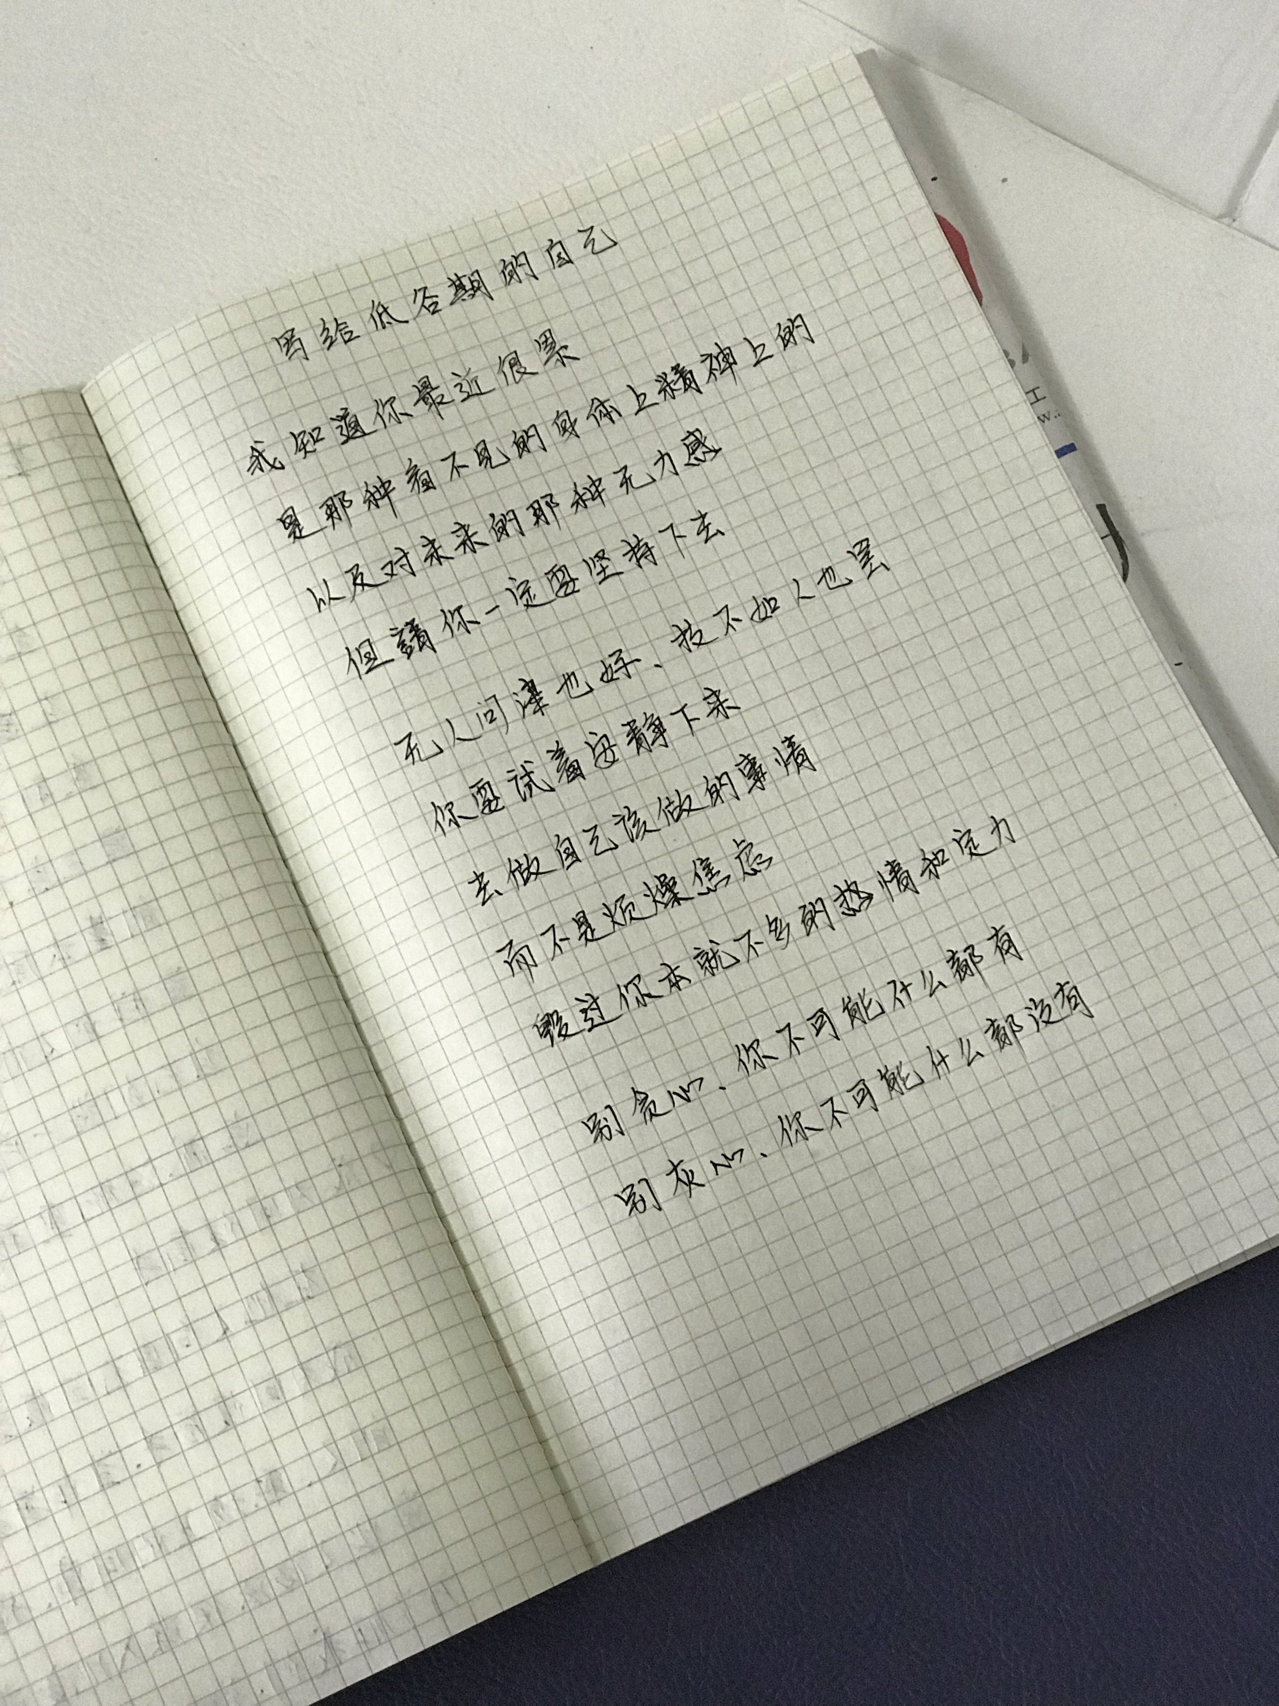 写给低谷期的自己
我知道你最近很累
是那种看不见的身体上精神上的
以及对未来的那种无力感
但請你一定要坚持下去
无人问津也好、技不如人也罢
你要试着安静下来
去做自己该做的事情
而不是烦燥焦虑
毁过你本就不多的热情和定力
别贪心、你不可能什么都有
别灰心、你不可能什么都没有